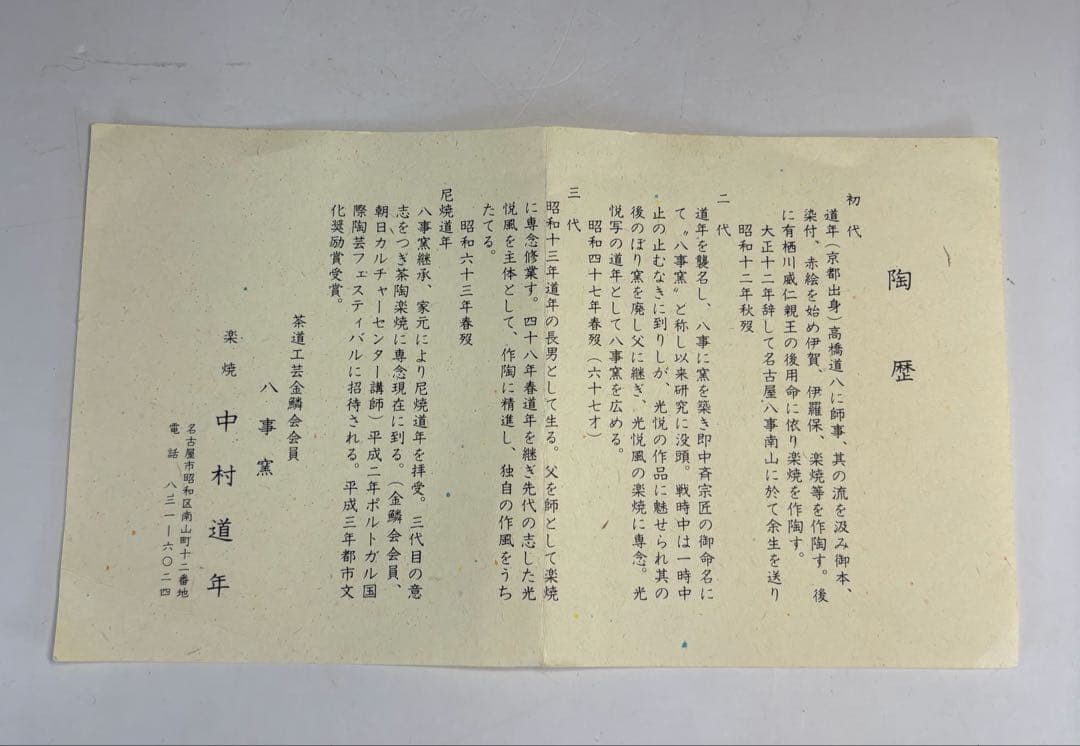 陶歴
初代
道年（京都出身）高橋道八に師事、其の流を汲み御本、
染付、赤絵を始め伊賀、伊羅保、楽焼等を作陶す。後
に有栖川威仁親王の後用命に依り楽焼を作陶す。
大正十二年辞して名古屋八事南山に於て余生を送り
昭和十二年秋歿
二代
道年を襲名し、八事に窯を築き即中斉宗匠の御命名に
て〝八事窯〟と称し以来研究に没頭。戦時中は一時中
止の止むなきに到りしが、光悦の作品に魅せられ其の
後のぼり窯を廃し父に継ぎ、光悦風の楽焼に専念。光
悦写の道年として八事窯を広める。
昭和四十七年春歿（六十七才）
三代
昭和十三年道年の長男として生る。父を師として楽焼
に専念修業す。四十八年春道年を継ぎ先代の志した光
悦風を主体として、作陶に精進し、独自の作風をうち
たてる。
昭和六十三年春歿
尼焼道年
八事窯継承、家元により尼焼道年を拝受。三代目の意
志をつぎ茶陶楽焼に専念現在に到る。（金鱗会会員、
朝日カルチャーセンター講師）平成二年ポルトガル国
際陶芸フェスティバルに招待される。平成三年都市文
化奨励賞受賞。
茶道工芸金鱗会会員
八事窯
楽焼 中村道年
名古屋市昭和区南山町十二番地
電話 八三一―六〇二四